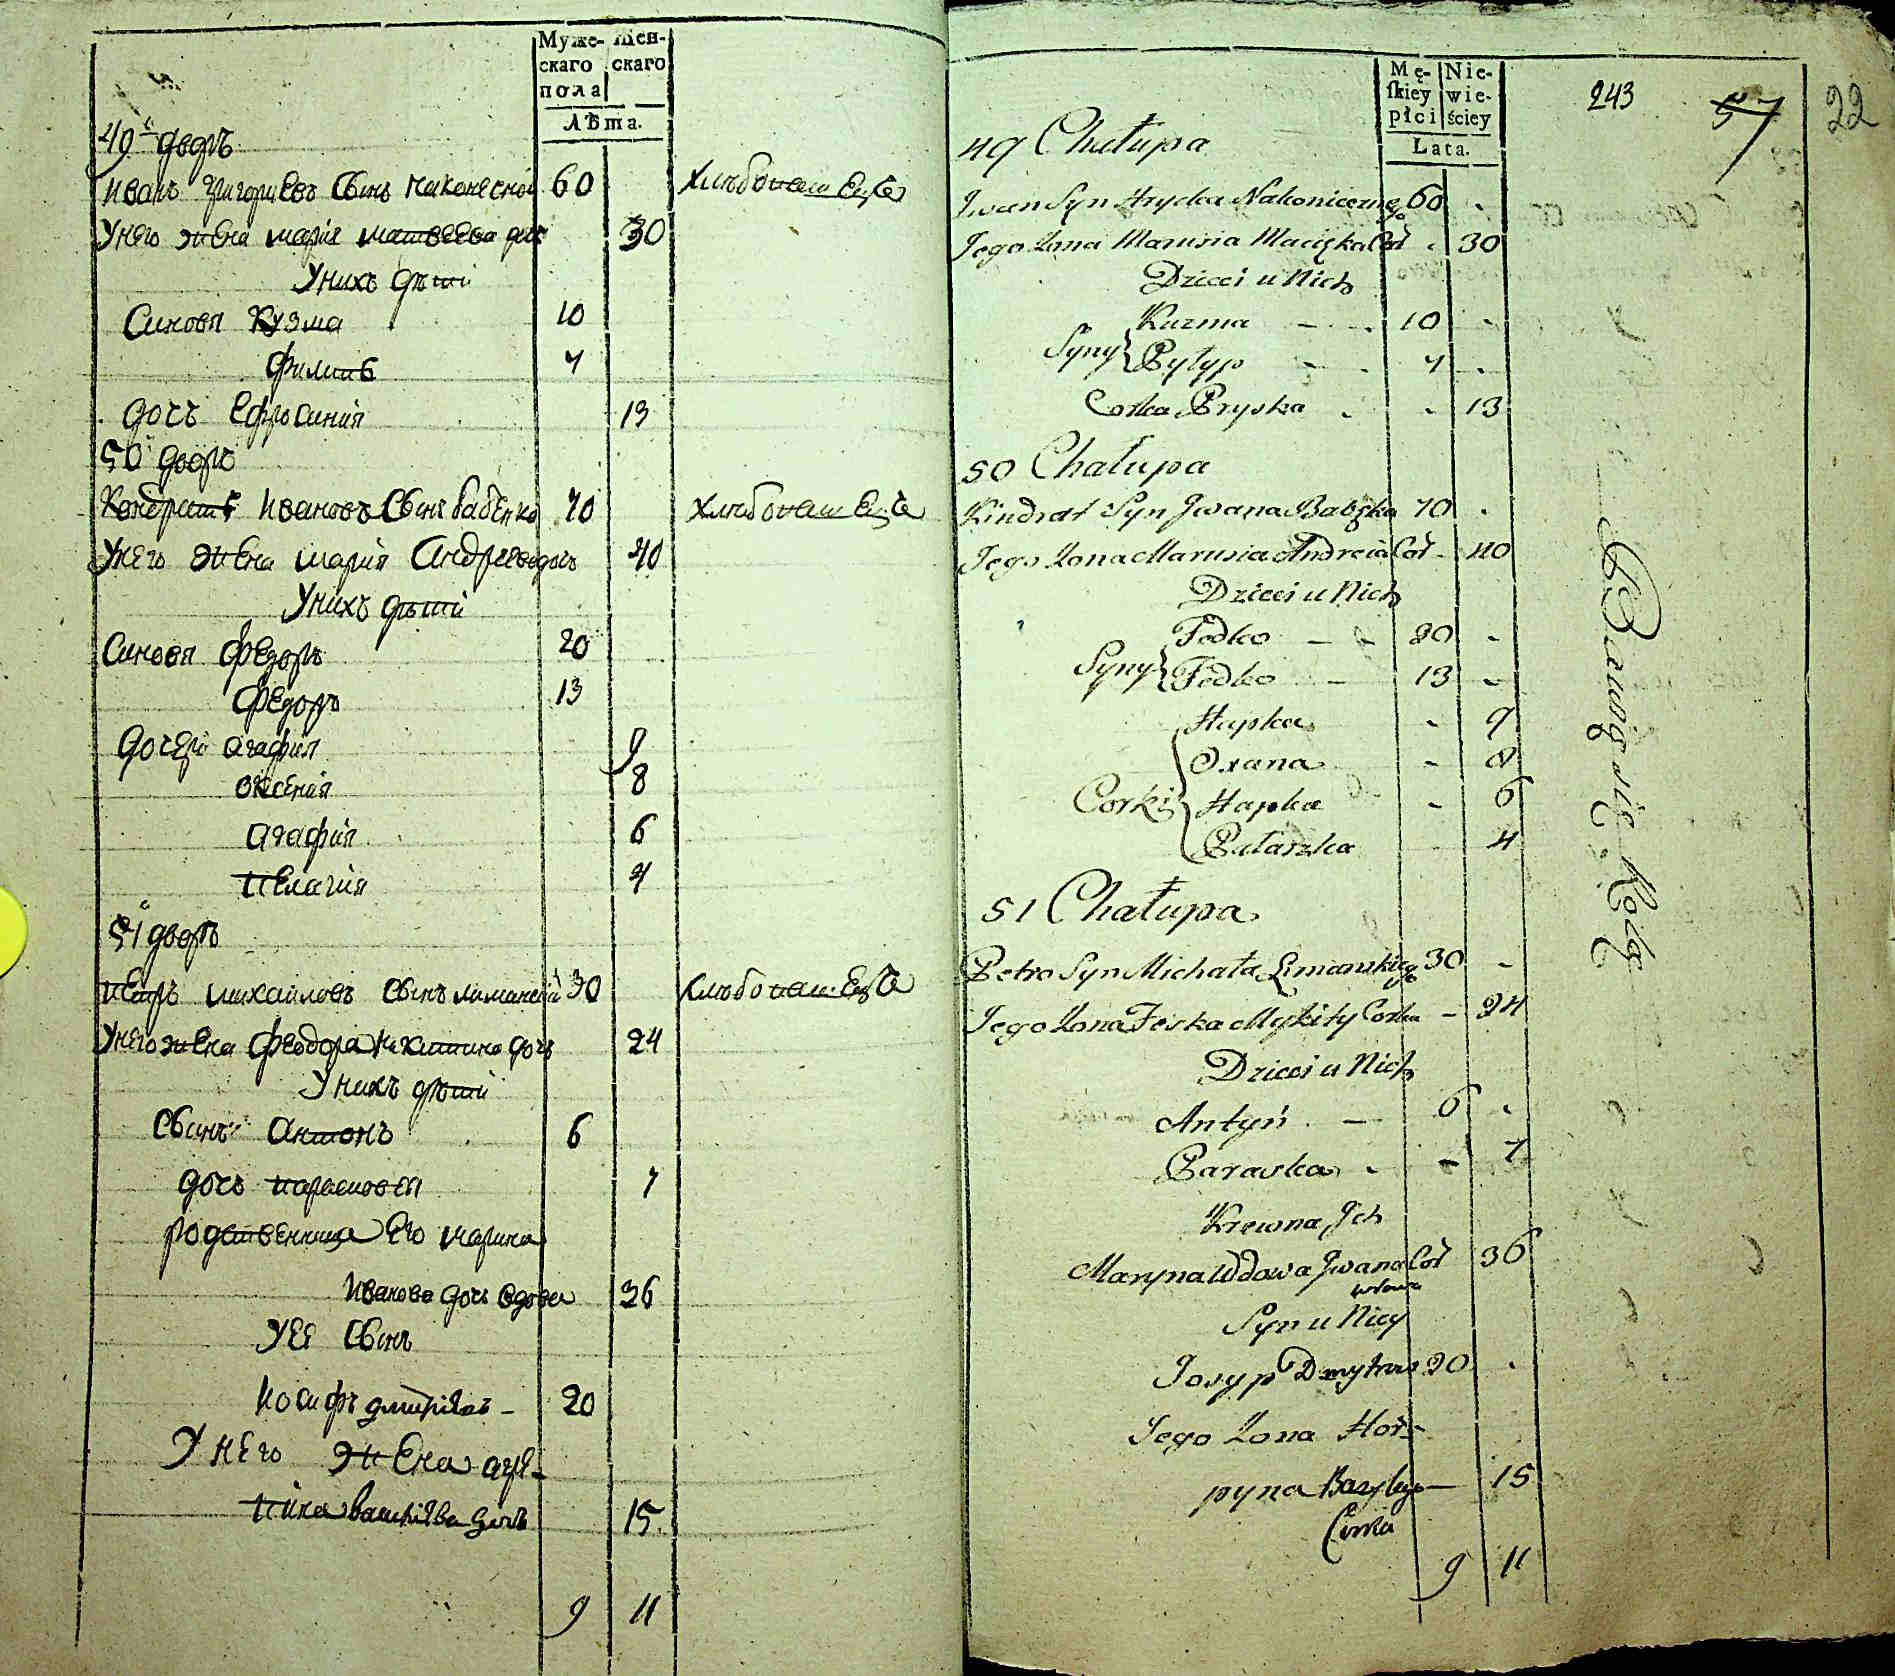 Муже-
скаго
пола
Жен-
скаго
Лѣта.
49й дворъ
Иванъ Григориевъ Сынъ Наконесной 60 Хлѣбопашецъ
У него жена мария матвеева дочь 30
У нихъ дѣти
Синовя Кузма 10
Филипъ 7
дочъ Ефросиния 13
50й дворъ
Кондратъ Ивановъ Сынъ бабенко 70 Хлѣбопашецъ
У него жена мария Андреева дочъ 40
У нихъ дѣти
Синовя Федоръ 20
Федоръ 13
дочери агафия 9
оксения 8
агафия 6
пелагия 4
51й дворъ
петръ михайловъ Сынъ лиманский 30 Хлѣбопашецъ
У него жена Феодора Никитина дочъ 24
У нихъ дѣти
Сынъ антонъ 6
дочъ парасковея 7
родственница Его марина
Иванова дочъ вдова 36
У Ее Сынъ
Иосифъ дмитриевъ - 20
У Него жена агре-
пина василиева дочъ 15
9 11
Mę-
skiey
płci
Nie-
wie-
ściey
Lata.
243 57 22
49 Chałupa
Jwan Syn Hrycka Nakonicznego 60 -
Jego Zona Marusia Macięka Cor - 30
Dzieci u Nich
Kuzma - - 10 -
Syny Pyłyp - - 7 -
Corka Pryska - - 13
50 Chałupa
Kindrat Syn Jwana Babęka 70 -
Jego Zona Marusia Andreia Cor - 40
Dzieci u Nich
Fedko - - 20 -
Syny Fedko - 13 -
Hapka - 9
Oxana - 8
Corki Hapka - 6
Pałaszka 4
51 Chałupa
Petro Syn Michała Limanskiego 30 -
Jego Zona Feska Mykity Corka - 24
Dzieci u Nich
Antyń - 6 -
Paraska - - 7
Krewna Jch
Maryna Wdowa Jwana Cor 36
Syn u Niey
Josyp Dmytrow 20 -
Jego Zona Hor-
pyna Bazylego - 15
Corka
9 11
Bawią się Rolą